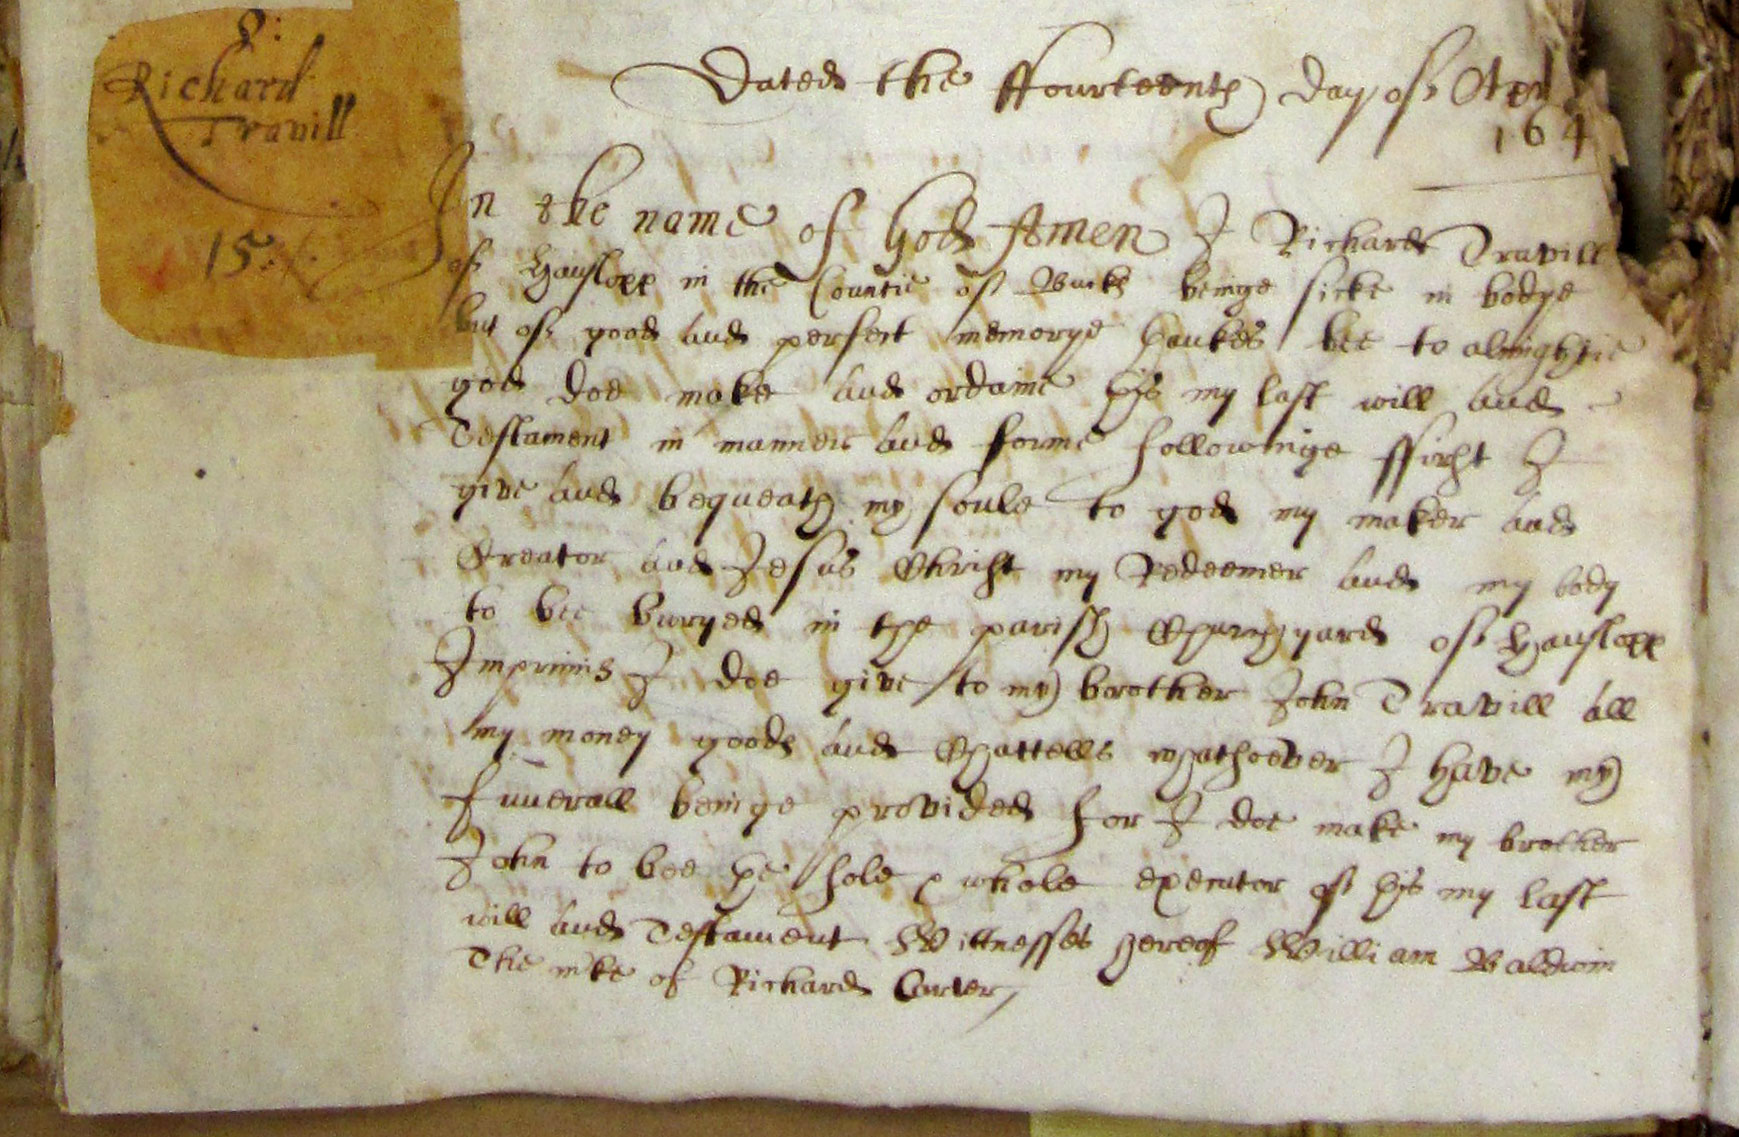 8:
Richard
Travill
15:/.
Dated the ffourteenth day of
164
In the name of God Amen I Richard Travill
of Hanslopp in the Countie of Bucks beinge sicke in bodye
but of good and perfect memorye thankes bee to almightie
god doe make and ordaine this my last will and
Testament in manner and forme followinge ffirst I
give and bequeath my soule to god my maker and
Creator and Jesus Christ my Redeemer and my body
to bee buryed in the parish Churchyard of Hanslopp
Imprimis I doe give to my brother John Travill all
my money goods and Chattells whatsoever I have my
funerall beinge provided for I doe make my brother
John to bee the sole & whole executor of this my last
will and Testament Wittnesses hereof William Baldwin
The mke of Richard Carter